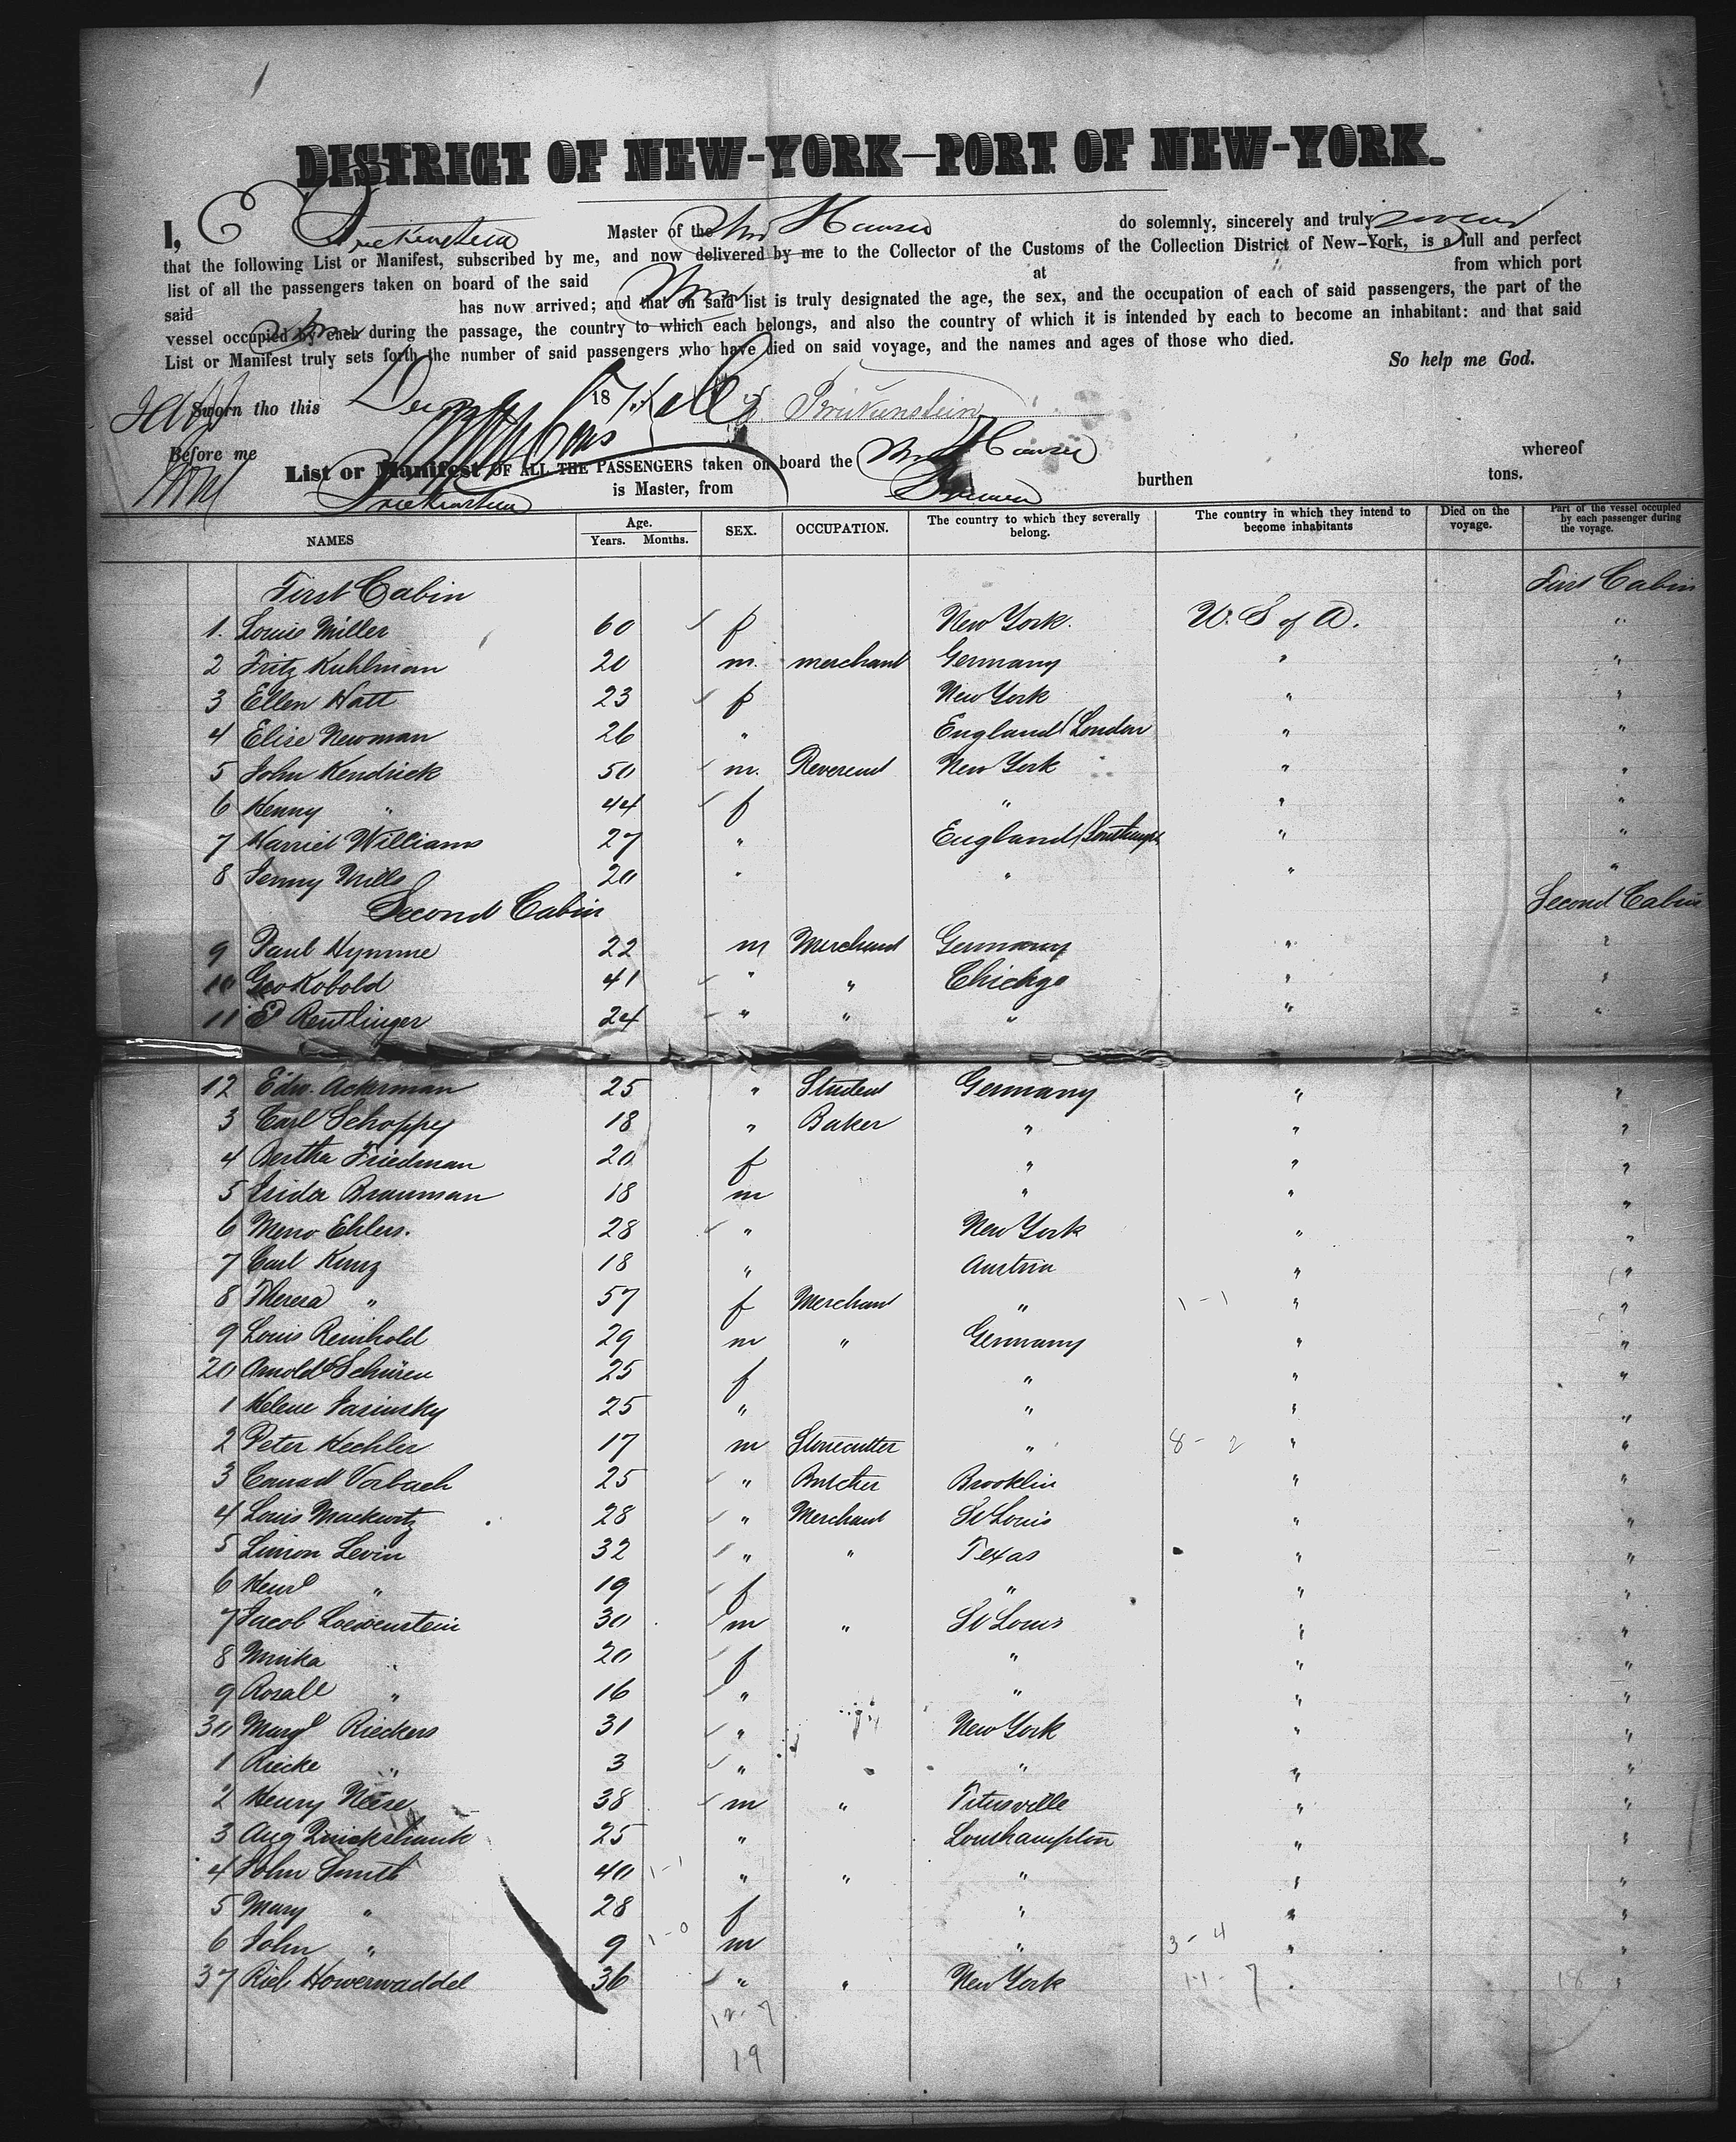 DISTRICT OF NEW-YORK—PORT OF NEW-YORK.
I, E Brickenstein Master of the Str Hansa do solemnly, sincerely and truly swear
that the following List or Manifest, subscribed by me, and now delivered by me to the Collector of the Customs of the Collection District of New-York, is a full and perfect
list of all the passengers taken on board of the said at from which port
said has now arrived; and that on said list is truly designated the age, the sex, and the occupation of each of said passengers, the part of the
vessel occupied by each during the passage, the country to which each belongs, and also the country of which it is intended by each to become an inhabitant: and that said
List or Manifest truly sets forth the number of said passengers who have died on said voyage, and the names and ages of those who died.
So help me God.
Sworn tho this 18
Brickenstein
Before me
List or Manifest OF ALL THE PASSENGERS taken on board the Str Hansa whereof
Brickenstein is Master, from Bremen burthen tons.
NAMES Age. Years. Months. SEX. OCCUPATION. The country to which they severally belong. The country in which they intend to become inhabitants Died on the voyage. Part of the vessel occupied by each passenger during the voyage.
First Cabin First Cabin
1. Louis Miller 60 f New York. U. S of A. "
2 Fritz Kuhlman 20 m. merchant Germany " "
3 Ellen Hatt 23 f New York " "
4 Elise Newman 26 " England (London " "
5 John Kendrick 50 m. Reverend New York " "
6 Henny " 44 f " " "
7 Harriet Williams 27 " England " "
8 Jenny Mills 20 " " " "
Second Cabin Second Cabin
9 Paul Hymme 22 m Merchant Germany " "
10 Geo Kobold 41 " " Chickgo " "
11 E Reutlinger 24 " " " " "
12 Edw. Ackerman 25 " Student Germany " "
3 Carl Schoppey 18 " Baker " " "
4 Bertha Friedman 20 f " " "
5 Isidor Brauman 18 m " " "
6 Meno Ehlers. 28 " New York " "
7 Carl Kunz 18 " Austria " "
8 Theresa " 57 f Merchant " 1-1 " "
9 Louis Reinhold 29 m " Germany " "
20 Arnold Schüren 25 f " " "
1 Helene Jasinsky 25 " " " "
2 Peter Hechler 17 m Stonecutter " 8-2 " "
3 Conrad Vorbach 25 " Butcher Brooklin " "
4 Louis Mackwitz 28 " Merchant St Louis " "
5 Simon Levin 32 " " Texas " "
6 Henr " 19 f " " "
7 Jacob Loewenstein 30 m " St Louis " "
8 Minka " 20 f " " "
9 Rosali " 16 " " " "
30 Marg Rieckers 31 " New York " "
1 Riecke " 3 " " " "
2 Henry Neese 38 m " Titusville " "
3 Aug Quickshank 25 " Southampton " "
4 John Smith 40 1-1 " " " " "
5 Mary " 28 f " " "
6 John " 9 1-0 m " 3-4 " "
37 Rich Howerwaddel 36 " " New York 11-7 " 18 "
12-7
19